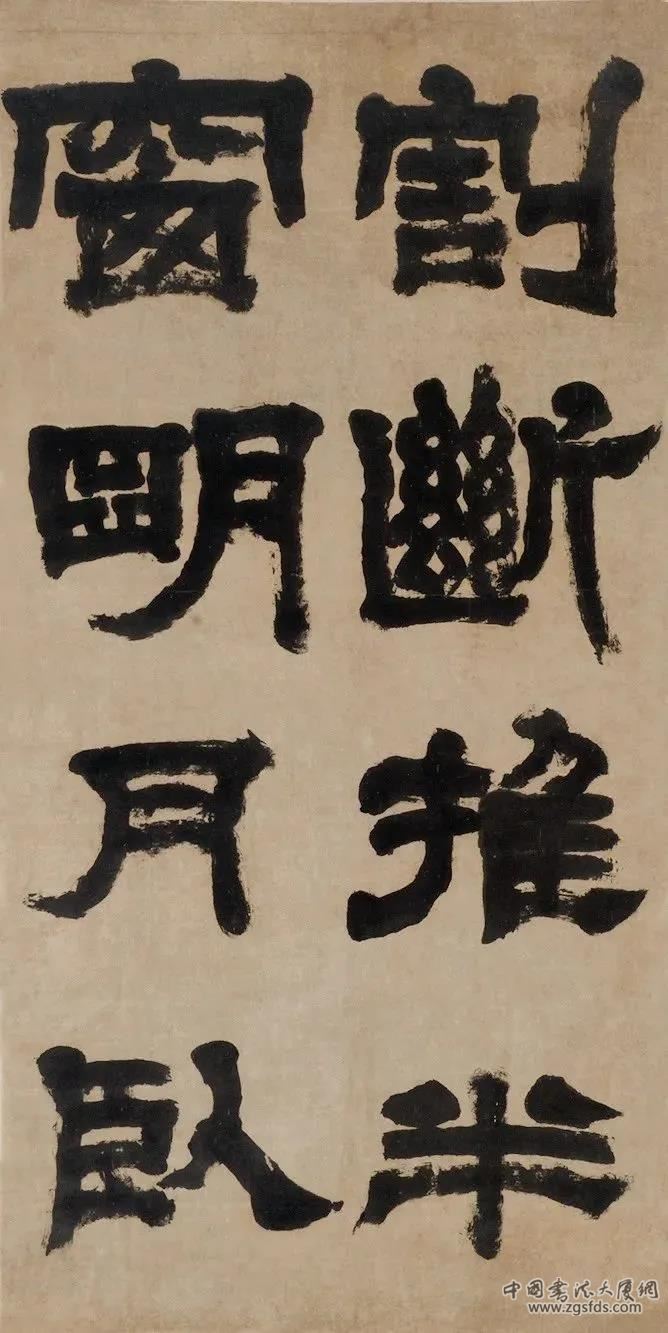 割斷推半
窗明月臥
中國書法大廈網
www.zgsfds.com